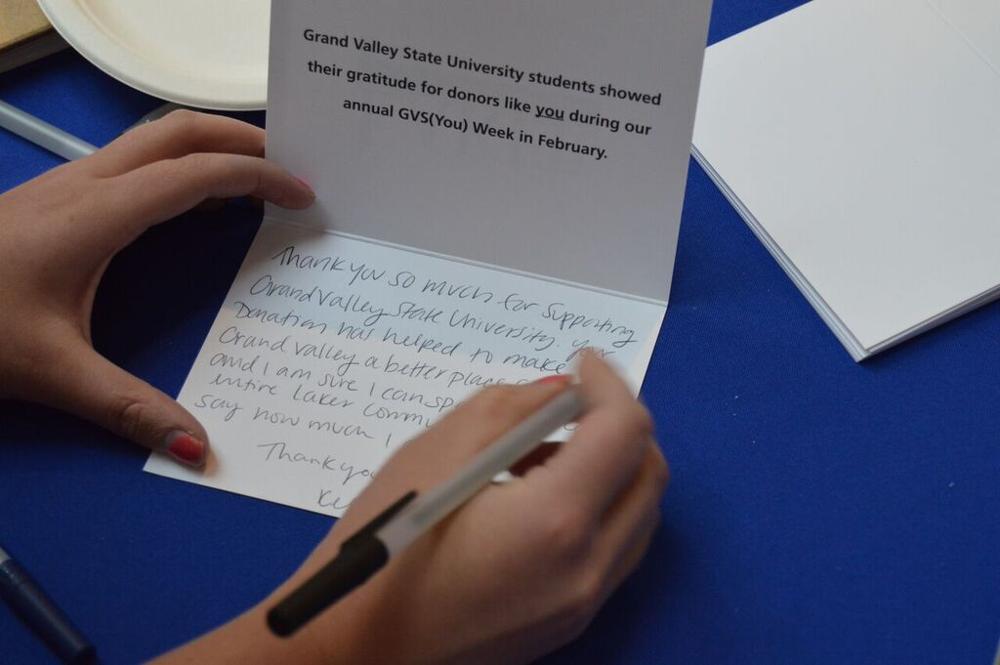 Grand Valley State University students showed
their gratitude for donors like you during our
annual GVS(You) Week in February.
Thank you so much for supporting
Grand Valley State University. Your
Donation has helped to make
Grand Valley a better place
and I am sure I can sp
entire Laker Commu
say how much I
Thank you